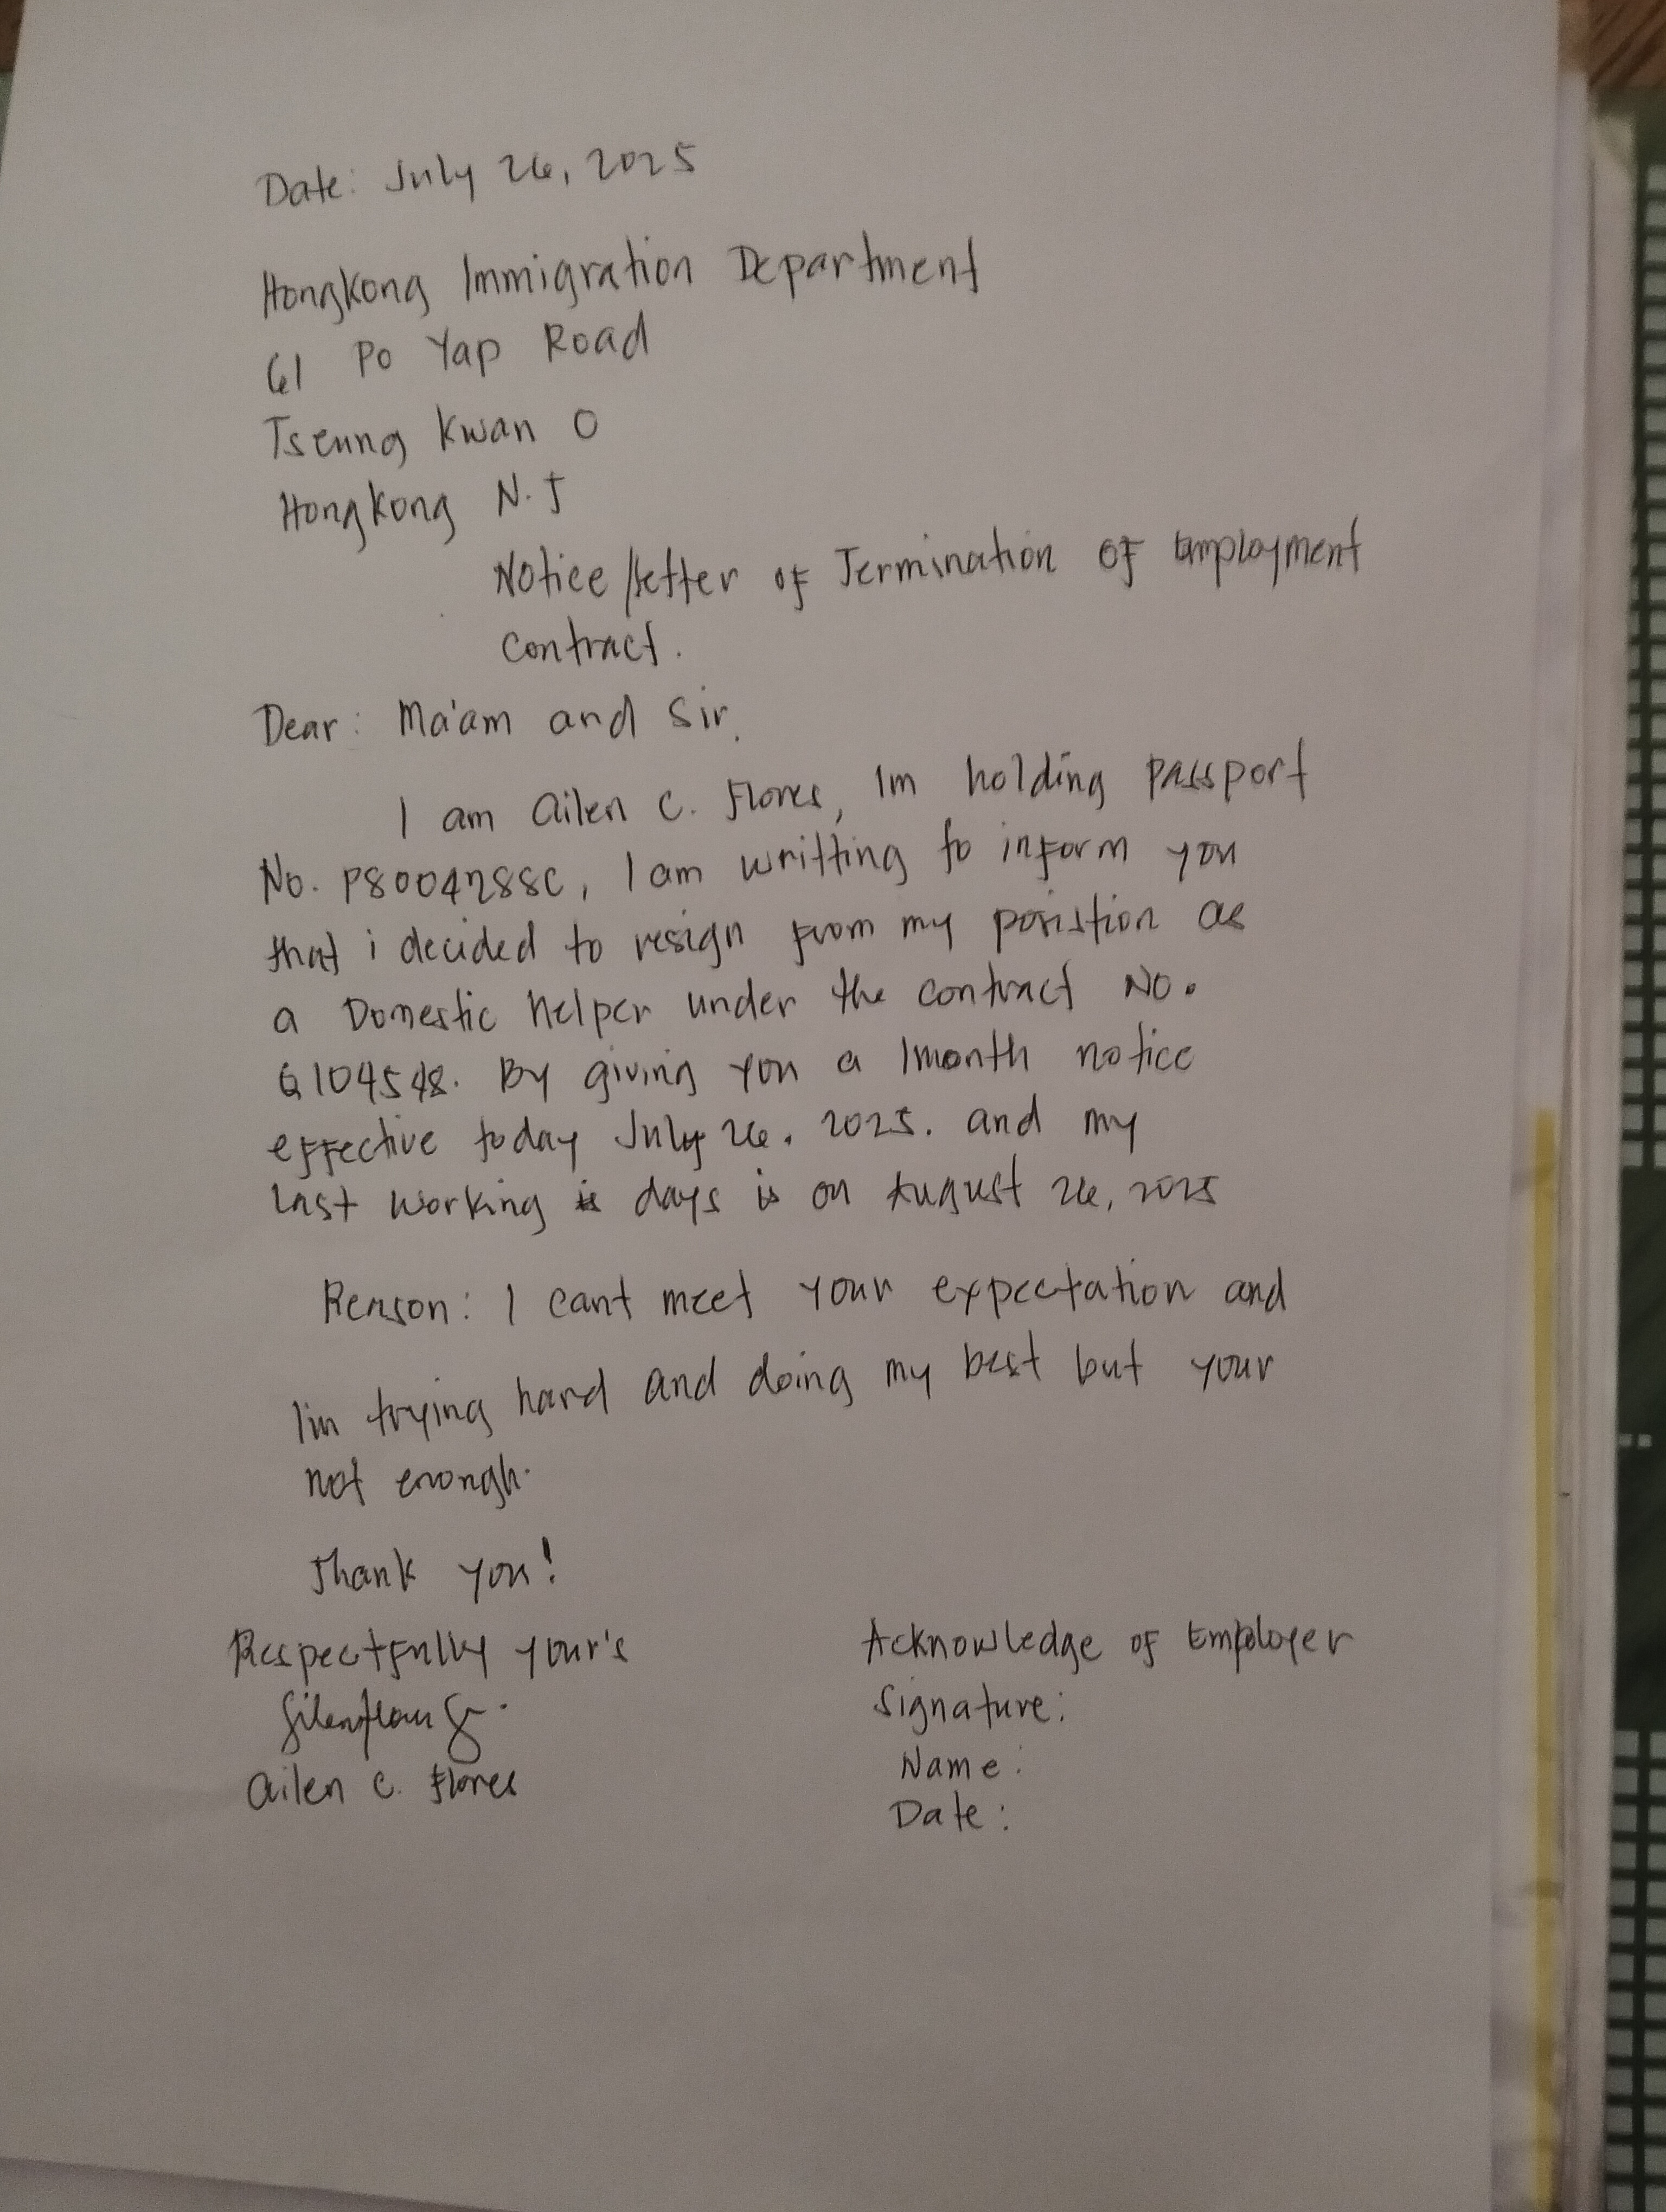 Date: July 26, 2025
Hongkong Immigration Department
61 Po Yap Road
Tseung Kwan O
Hongkong N.T
Notice/letter of Termination of Employment
Contract.
Dear: Ma'am and Sir,
I am Ailen C. Flores, Im holding passport
No. P8004288C, I am writting to inform you
that i decided to resign from my poristion as
a Domestic Helper under the contract No.
By giving you a 1month notice
effective today July 26, 2025. and my
Last working days is on August 26, 2025
Reason: I cant meet your expectation and
I'm trying hard and doing my best but your
not enough.
Thank you!
Respectfully your's
Ailen C. Flores
Acknowledge of Employer
Signature:
Name:
Date: